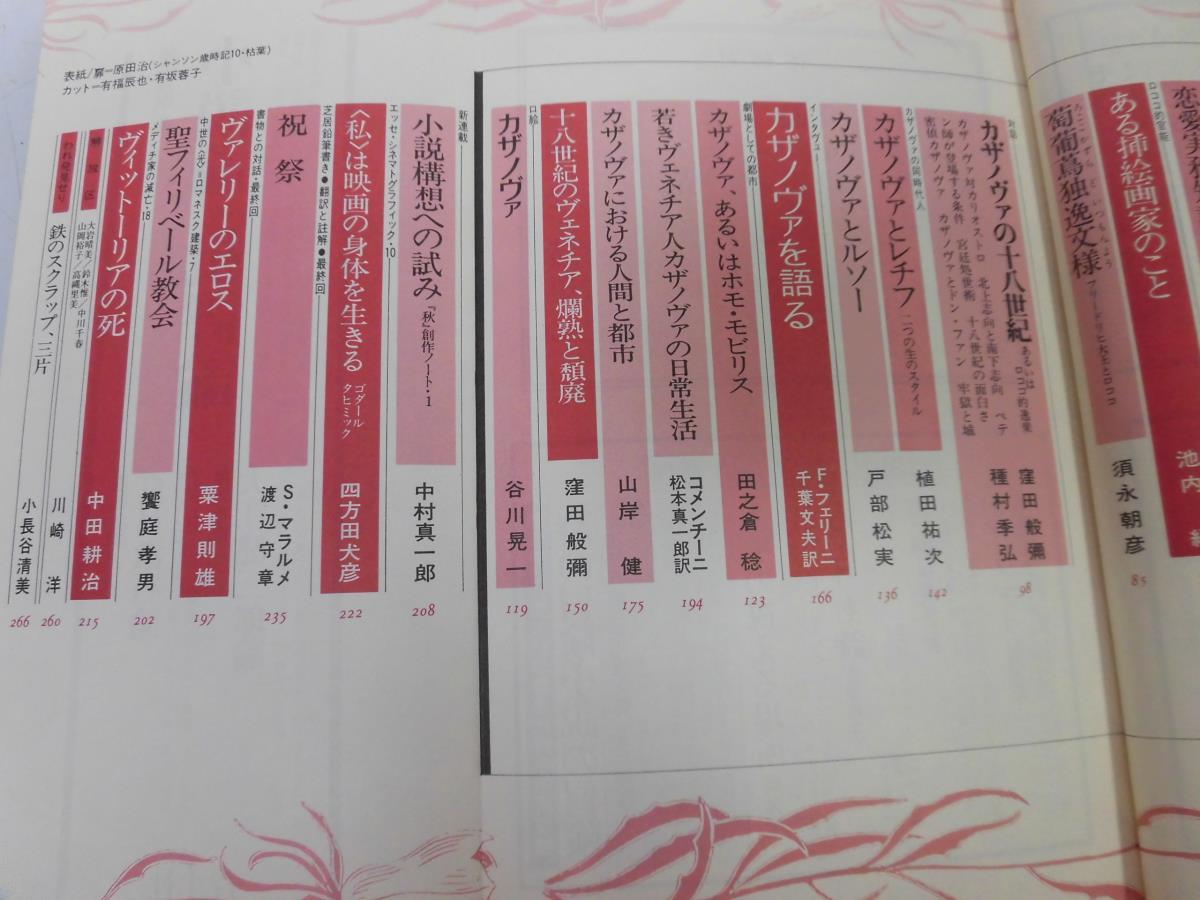 恋愛
ロココ的官能
ある挿絵画家のこと
池内
葡萄蔦独逸文様
フリードリヒ大王とロココ
須永朝彦
85
対話
カザノヴァの十八世紀
あるいは
ロココ的逸楽
カザノヴァ対カリオストロ 北上志向と南下志向 ペテ
ン師が登場する条件 宮廷処世術 十八世紀の面白さ
密偵カザノヴァ カザノヴァとドン・ファン 牢獄と城
窪田般彌
種村季弘
98
カザノヴァの同時代人
カザノヴァとレチフ
二つの生のスタイル
植田祐次
142
カザノヴァとルソー
戸部松実
136
インタヴュー
カザノヴァを語る
F・フェリーニ
千葉文夫訳
166
劇場としての都市
カザノヴァ、あるいはホモ・モビリス
田之倉稔
123
若きヴェネチア人カザノヴァの日常生活
コメンチーニ
松本真一郎訳
194
カザノヴァにおける人間と都市
山岸健
175
十八世紀のヴェネチア、爛熟と頽廃
窪田般彌
150
口絵
カザノヴァ
谷川晃一
119
表紙/扉=原田治(シャンソン歳時記10・枯葉)
カット=有福辰也・有坂蓉子
新連載
小説構想への試み
『秋』創作ノート・1
中村真一郎
208
エッセ・シネマトグラフィック・10
〈私〉は映画の身体を生きる
ゴダール
タヒミック
四方田犬彦
222
芝居鉛筆書き●翻訳と註解●最終回
祝祭
S・マラルメ
渡辺守章
235
書物との対話・最終回
ヴァレリーのエロス
粟津則雄
197
中世の〈芯〉=ロマネスク建築・7
聖フィリベール教会
饗庭孝男
202
メディチ家の滅亡・18
ヴィットーリアの死
中田耕治
215
解放区
大岩晴美/鈴木惟/中川千春
山岡裕子/高縄里美
川崎洋
260
われ発見せり
鉄のスクラップ、三片
小長谷清美
266